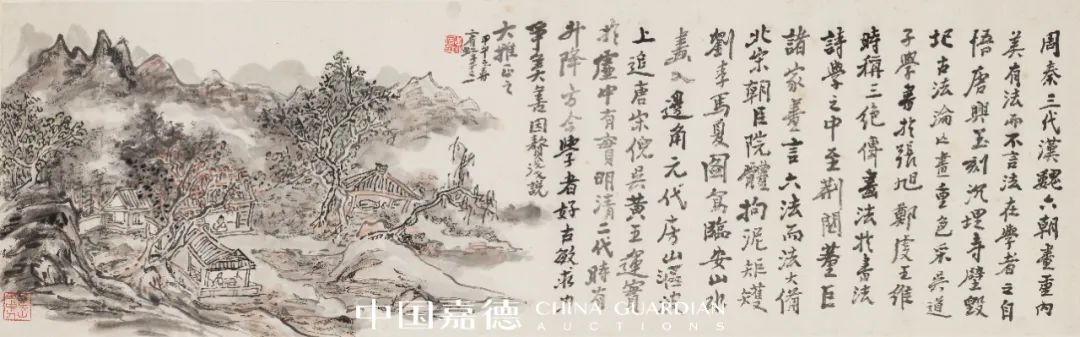 周秦三代漢魏六朝畫重內
美有法而不言法在學者之自
悟唐興玉刻沉埋寺壁毀
圮古法淪亡畫重色采吳道
子學書於張旭鄭虔王維
時稱三絕傳畫法於書法
詩學之中至荊關董巨
諸家善言六法而法大備
北宋朝臣院體拘泥矩矱
劉李馬夏圖寫臨安山水
畫入邊角元代房山漚波
上追唐宋倪吳黃王運實
於虛中有實明清二代時有
升降方今學者好古敏求
爭美善因贅淺說
大推正之
甲申
賓虹年八十又一
中国嘉德 CHINA GUARDIAN
AUCTIONS